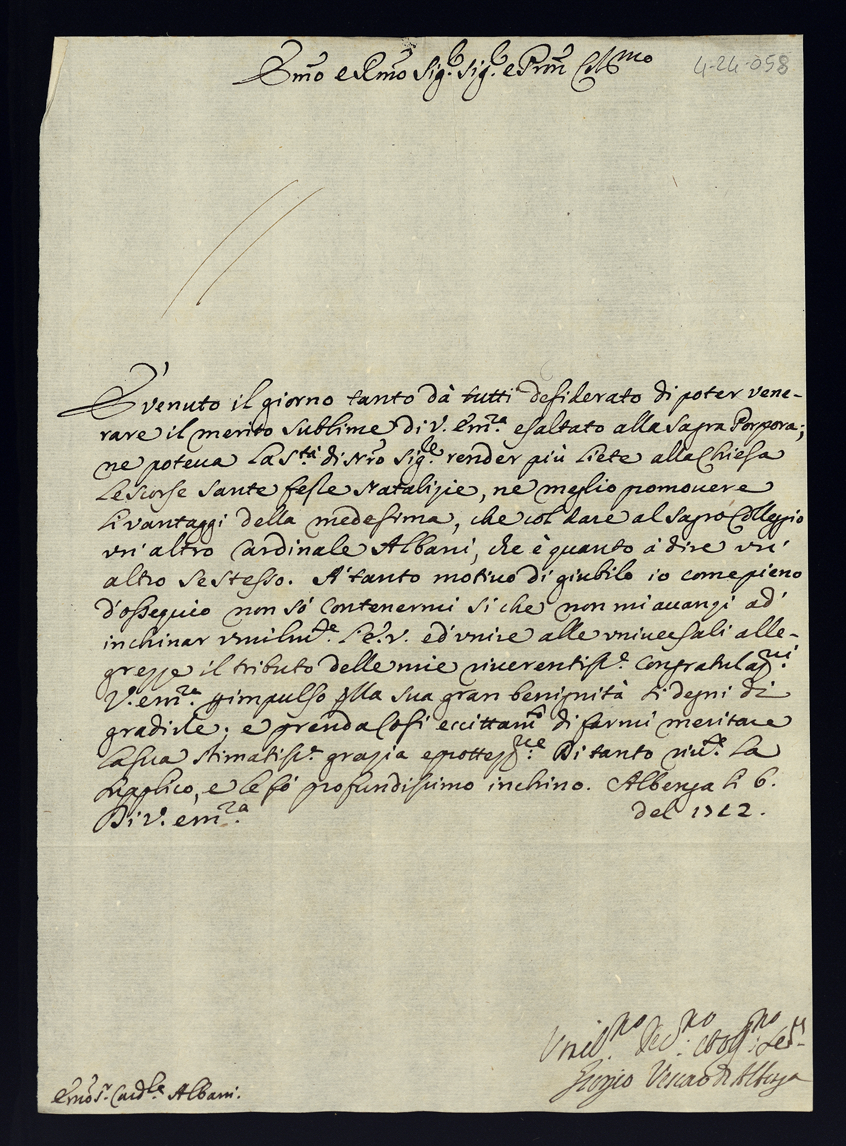 Emo e Rmo Sig.r Sig.r e Prõn Colmo
4-24-058
È venuto il giorno tanto dà tutti desiderato di poter vene-
rare il merito sublime di V. Em.za esaltato alla sagra Porpora;
ne poteua la S.tà di Nrõ Sig.re render più liete alla Chiesa
le scorse sante feste Natalizie, ne meglio promouere
li vantaggi della medesima, che col dare al sagro Colleggio
vn' altro Cardinale Albani, che è quanto à dire vn'
altro se stesso. A' tanto motiuo di giubilo io come pieno
d'ossequio non sò contenermi si che non mi auanzi ad'
inchinar vmilm.te l'e.V. ed' vnire alle vniuersali alle-
grezze il tributo delle mie riuerentiss.e Congratulaz.ni
V. em.za impulso della sua gran benignità si degni di
gradirle; e prenda Così eccittam.to di farmi meritare
la sua stimatiss.a grazia e prottez.ne Di tanto riu.te la
supplico, e le fò profundissimo inchino. Albenga li 6.
Di V. em.za del 1722.
Vmil.mo Deu.mo obblig.mo Ser.
Giorgio Vescouo di Albenga
Emo S.r Card.le Albani.